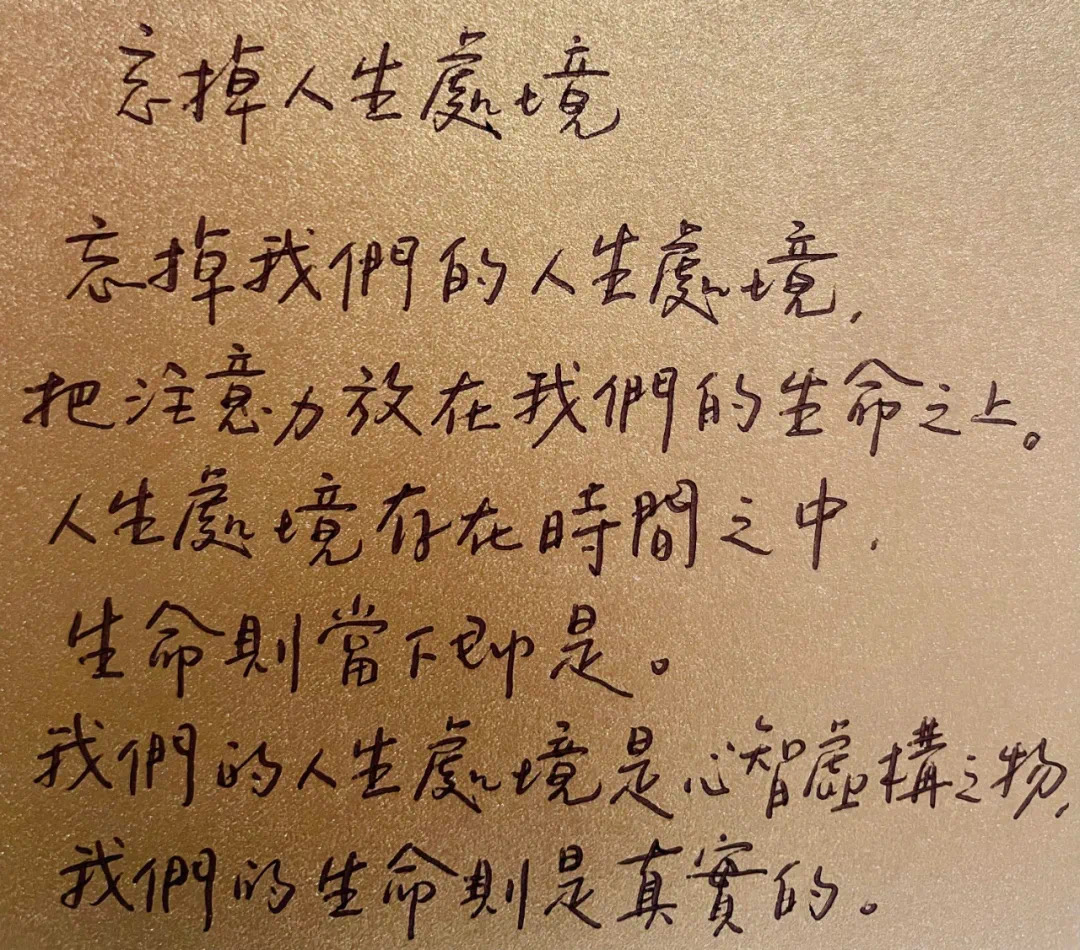 忘掉人生處境
忘掉我們的人生處境,
把注意力放在我們的生命之上。
人生處境存在時間之中,
生命則當下即是。
我們的人生處境是心智虛構之物,
我們的生命則是真實的。